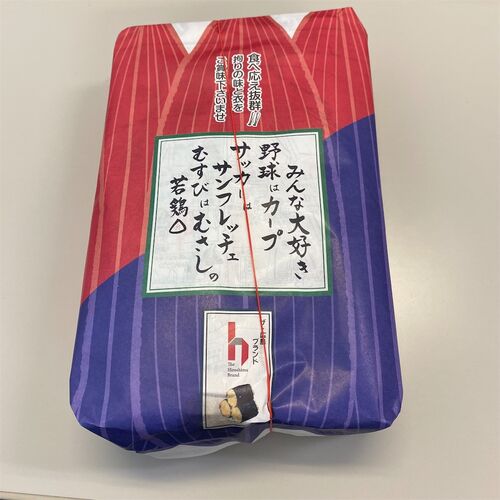 食べ応え抜群!!
拘りの味と衣を
ご賞味下さいませ
みんな大好き
野球はカープ
サッカーは
サンフレッチェ
むすびはむさしの
若鶏
ザ・広島
ブランド
h
The
Hiroshima
Brand